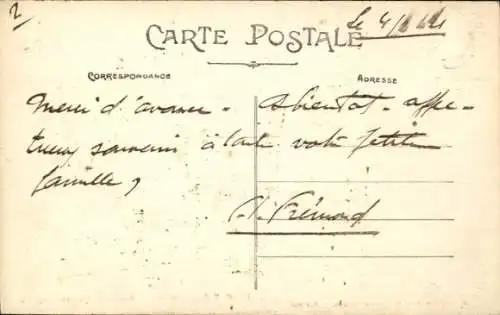 2
Le 4/
CARTE POSTALE
CORRESPONDANCE
ADRESSE
Merci d'avance - A bientôt - affec-
tueux souvenir à toute votre petite
famille,
Frémond